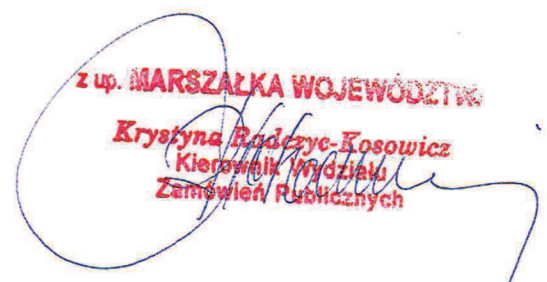 z up. MARSZAŁKA WOJEWÓDZTWA
Krystyna Radczyc-Kosowicz
Kierownik Wydziału
Zamówień Publicznych